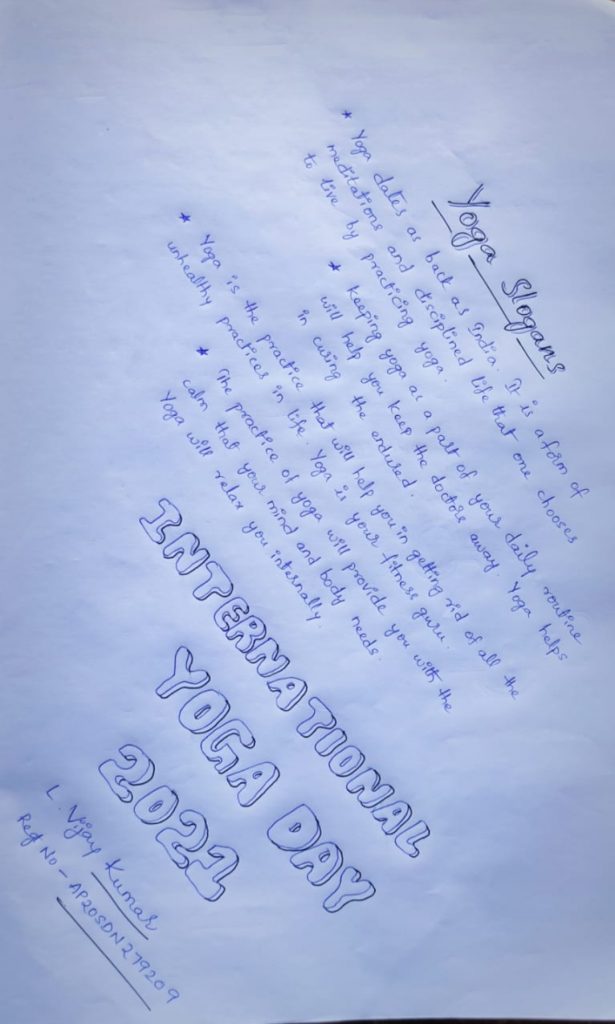 Yoga Slogans
* Yoga dates as back as India. It is a form of
meditations and disciplined life that one chooses
to live by practicing yoga.
* Keeping yoga as a part of your daily routine
will help you keep the doctors away. Yoga helps
in curing the endured.
* Yoga is the practice that will help you in getting rid of all the
unhealthy practices in life. Yoga is your fitness guru.
* The practice of yoga will provide you with the
calm that your mind and body needs.
Yoga will relax you internally.
INTERNATIONAL
YOGA DAY
2021
L. Vijay Kumar
Reg No - AP20SDN279209